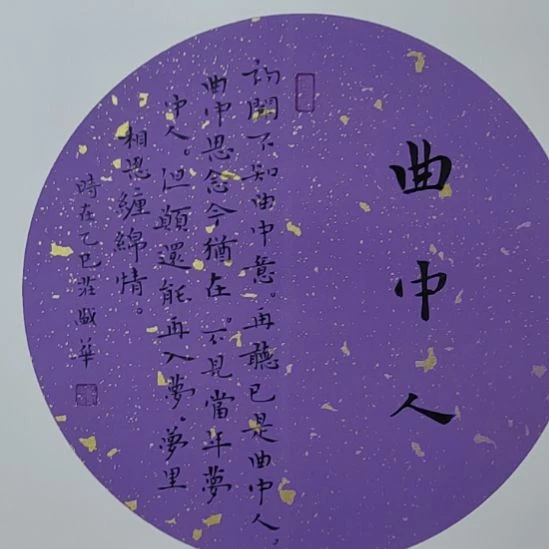 曲中人
初聞不知曲中意。再聽已是曲中人。
曲中思念今猶在。不見當年夢
中人。但願還能再入夢。夢里
相思纏綿情。
時在乙巳莊盛華